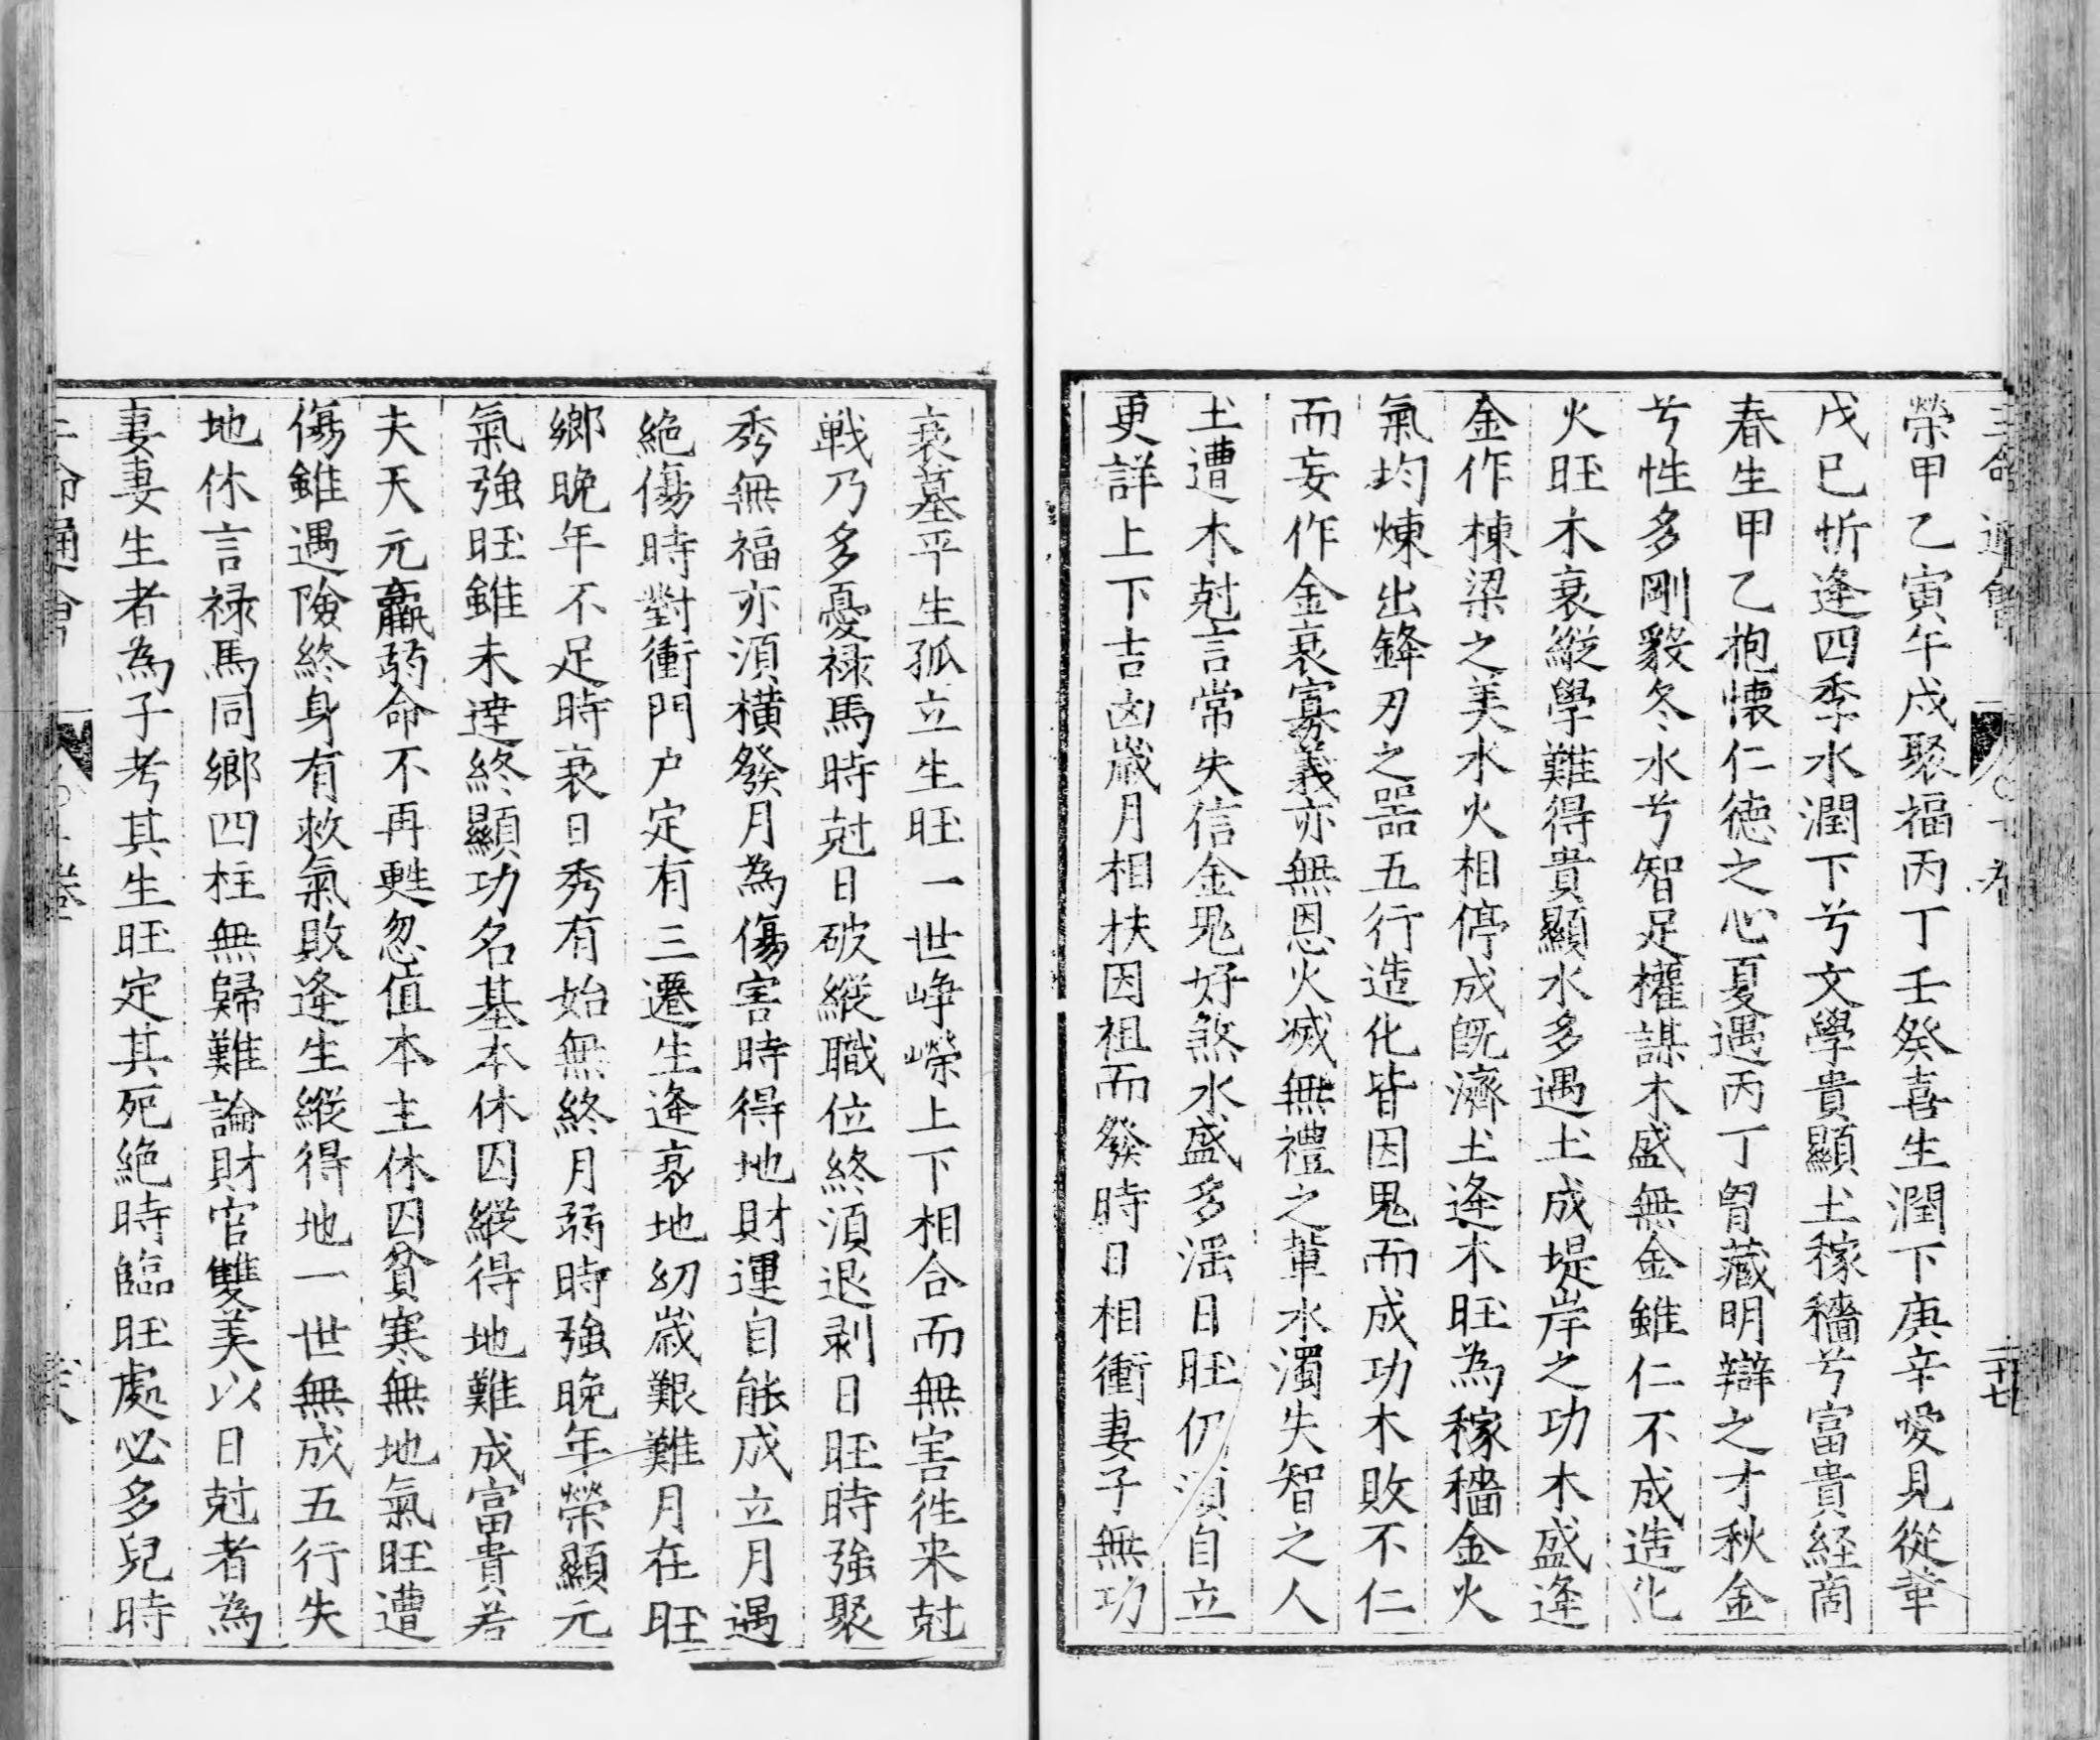 三命通會
二十七
榮甲乙寅午戌聚福丙丁壬癸喜生潤下庚辛愛見從革
戊巳忻逢四季水潤下兮文學貴顯土稼穡兮富貴経啇
春生甲乙抱懐仁徳之心夏遇丙丁胷藏明辯之才秋金
兮性多剛毅冬水兮智足權謀木盛無金雖仁不成造化
火旺木衰縱學難得貴顯水多遇土成堤岸之功木盛逢
金作棟梁之美水火相停成旣濟土逢木旺為稼穡金火
氣均煉出鋒刃之噐五行造化皆因鬼而成功木敗不仁
而妄作金衰寡義亦無恩火滅無禮之輩水濁失智之人
土遭木尅言常失信金鬼好煞水盛多滛日旺仍湏自立
更詳上下吉凶嵗月相扶因祖而發時日相衝妻子無功
衰墓平生孤立生旺一世峥嶸上下相合而無害徃来尅
戰乃多憂禄馬時尅日破縱職位終湏退剥日旺時強聚
秀無福亦湏橫發月為傷害時得地財運自能成立月遇
絶傷時對衝門户定有三遷生逢衰地幼嵗艱難月在旺
鄉晚年不足時衰日秀有始無終月弱時強晚年榮顯元
氣強旺雖未逹終顯功名基本休囚縱得地難成富貴若
夫天元羸弱命不再甦忽值本主休囚貧寒無地氣旺遭
傷雖遇險終身有救氣敗逢生縱得地一世無成五行失
地休言禄馬同鄉四柱無歸難論財官雙美以日尅者為
妻妻生者為子考其生旺定其死絶時臨旺處必多兒時